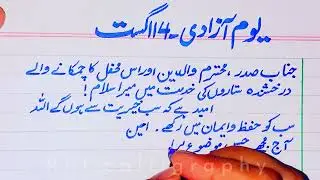 یوم آزادی - 14 اگست
جناب صدر، محترم والدین اور اس محفل کا چمکانے والے
درخشندہ ستاروں کی خدمت میں میرا سلام!
امید ہے کہ سب خیریت سے ہوں گے اللہ
سب کو حفظ و ایمان میں رکھے۔ امین
آج مجھے جس موضوع پر